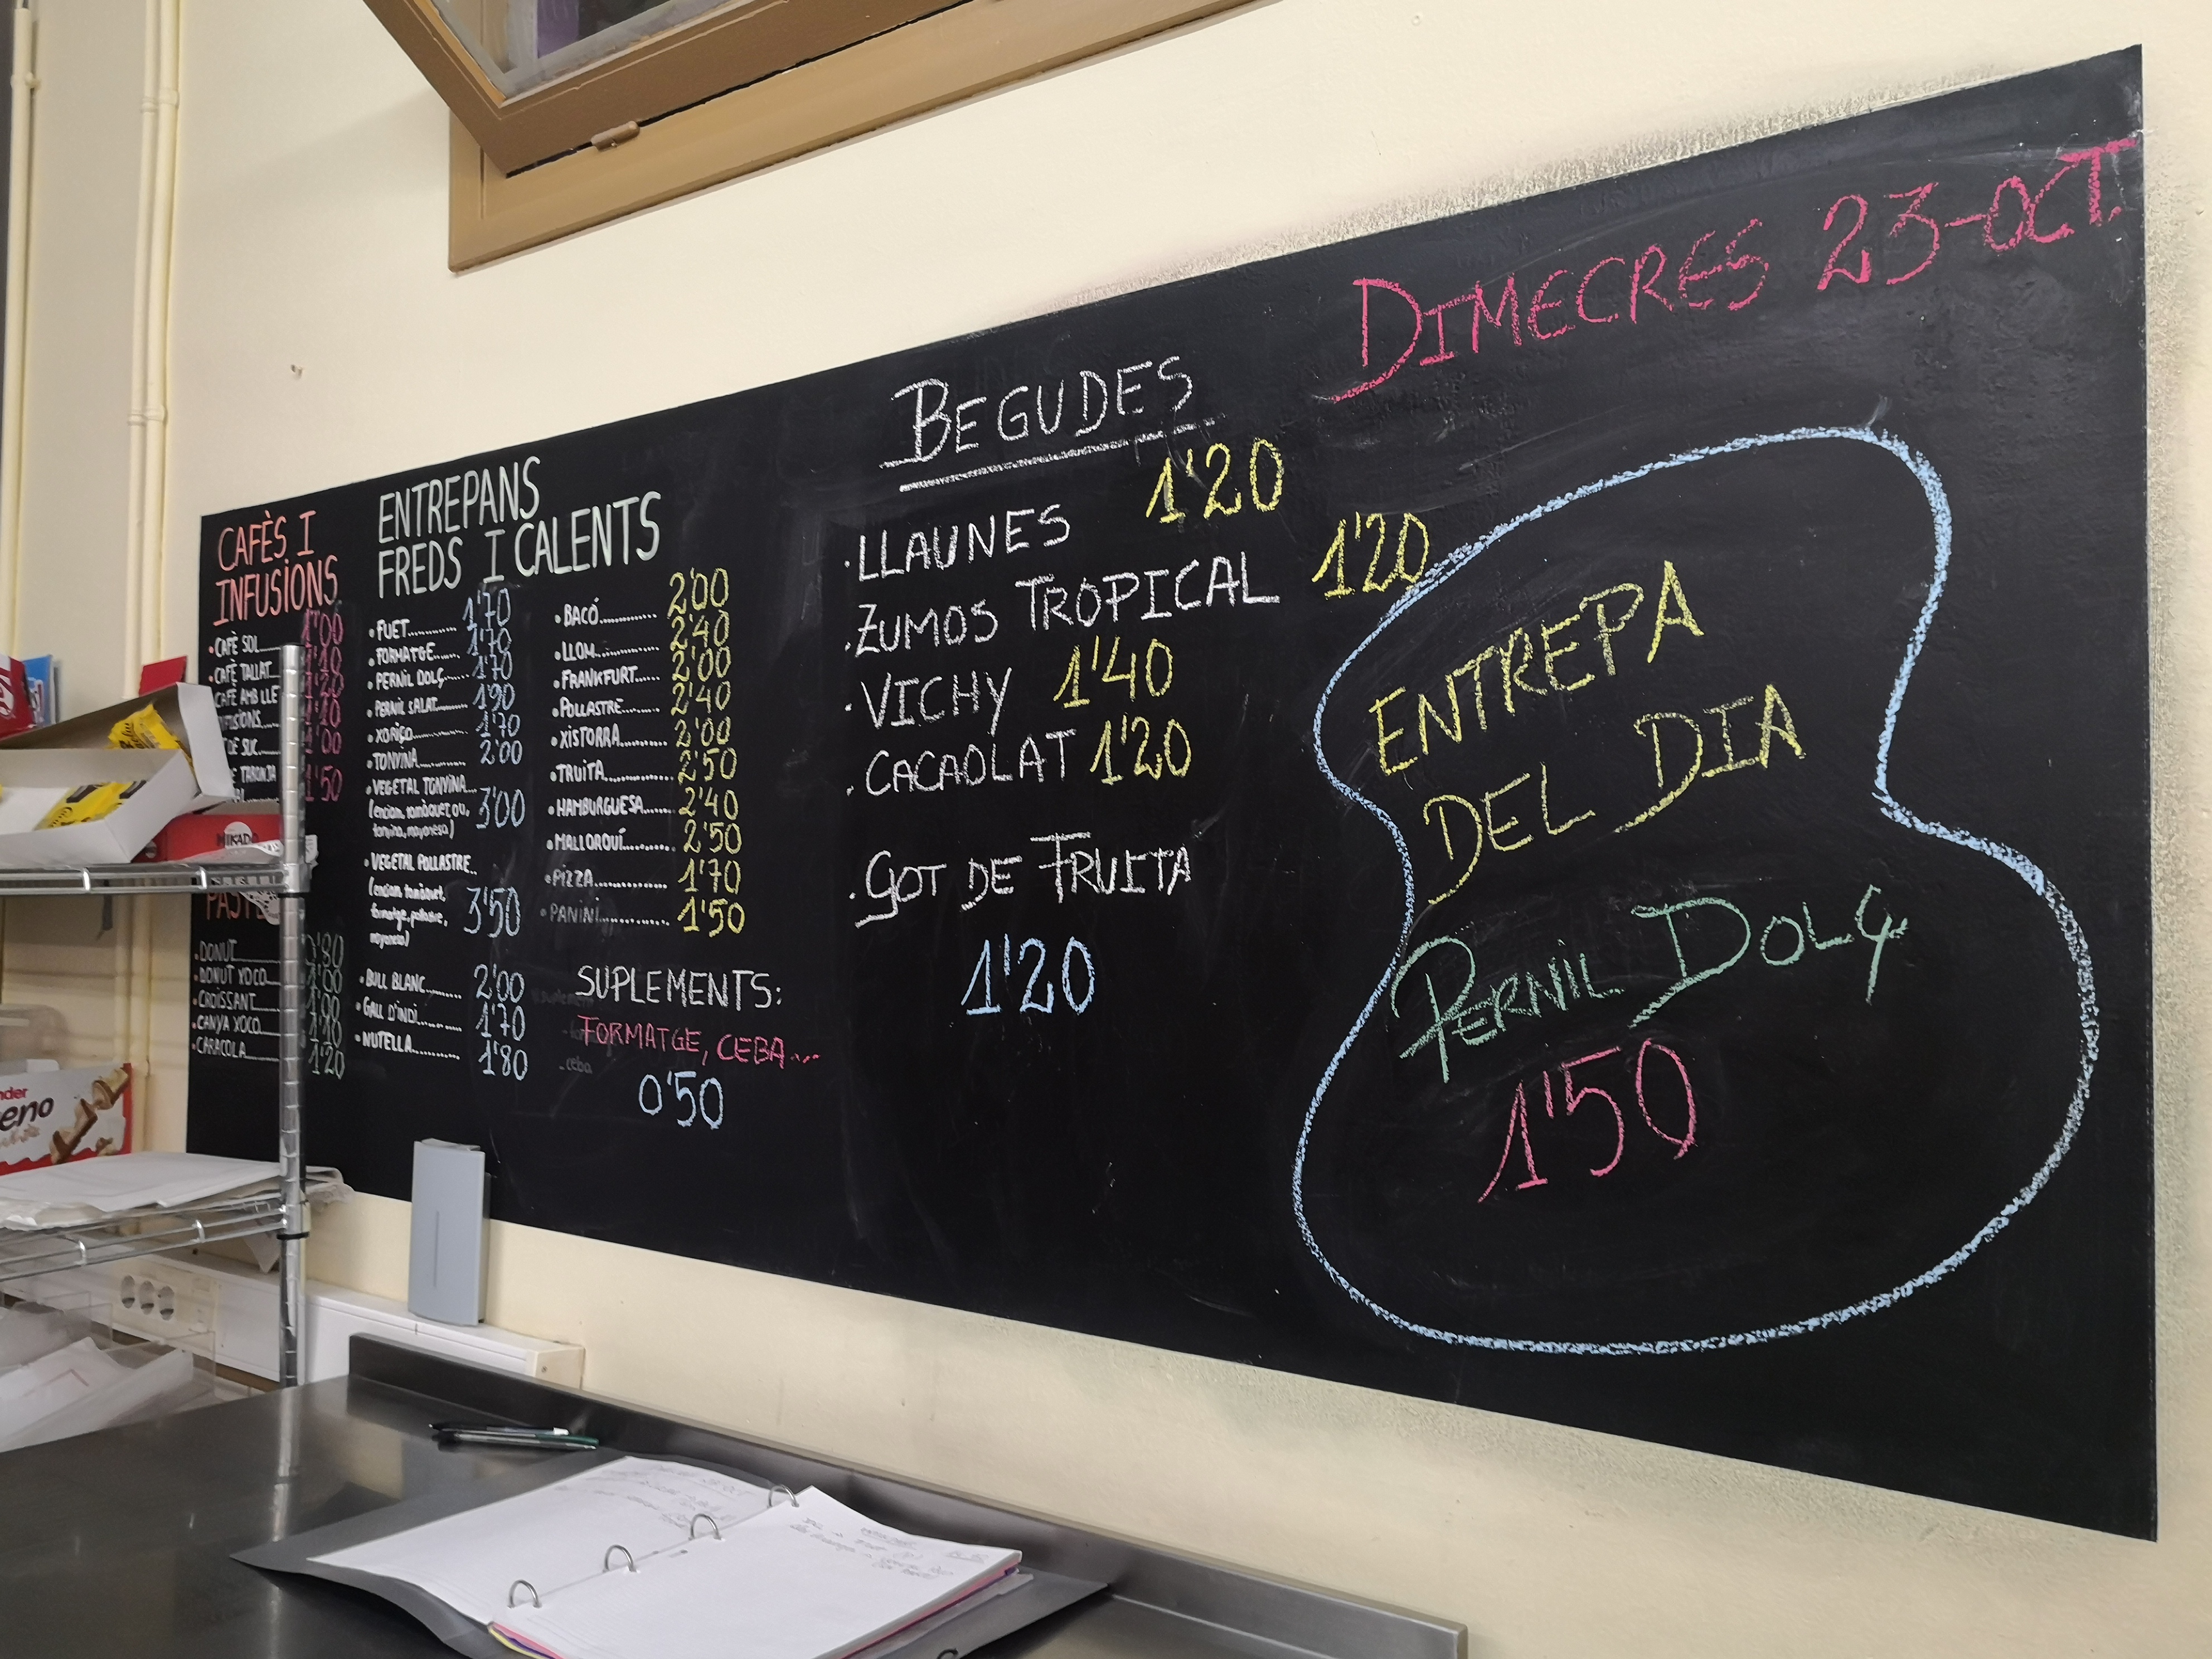 DIMECRES 23-OCT.
CAFÈS I
INFUSIONS
• CAFÈ SOL 1'00
• CAFÈ TALLAT 1'10
CAFÈ AMB LLE 1'20
1'10
DE SUC 1'00
TARONJA
1'50
• DONUT 0'80
• DONUT XOCO 1'00
• CROISSANT 1'00
• CANYA XOCO 1'10
• CARACOLA 1'20
ENTREPANS
FREDS I CALENTS
• FUET 1'70
• FORMATGE 1'70
• PERNIL DOLÇ 1'70
• PERNIL SALAT 1'90
• XORIÇO 1'70
• TONYINA 2'00
• VEGETAL TONYINA...
(enciam, tomàquet, ou, 3'00
tonyina, mayonesa)
• VEGETAL POLLASTRE..
(enciam, tomàquet,
formatge, pollastre, 3'50
mayonesa)
• BULL BLANC 2'00
• GALL D'INDI 1'70
• NUTELLA 1'80
• BACÓ 2'00
• LLOM 2'40
• FRANKFURT 2'00
• POLLASTRE 2'40
• XISTORRA 2'00
• TRUITA 2'50
• HAMBURGUESA 2'40
• MALLORQUÍ 2'50
• PIZZA 1'70
• PANINI 1'50
SUPLEMENTS:
FORMATGE, CEBA...
0'50
BEGUDES
• LLAUNES 1'20
• ZUMOS TROPICAL 1'20
• VICHY 1'40
• CACAOLAT 1'20
• GOT DE FRUITA
1'20
ENTREPA
DEL DIA
PERNIL DOLÇ
1'50
MIKADO